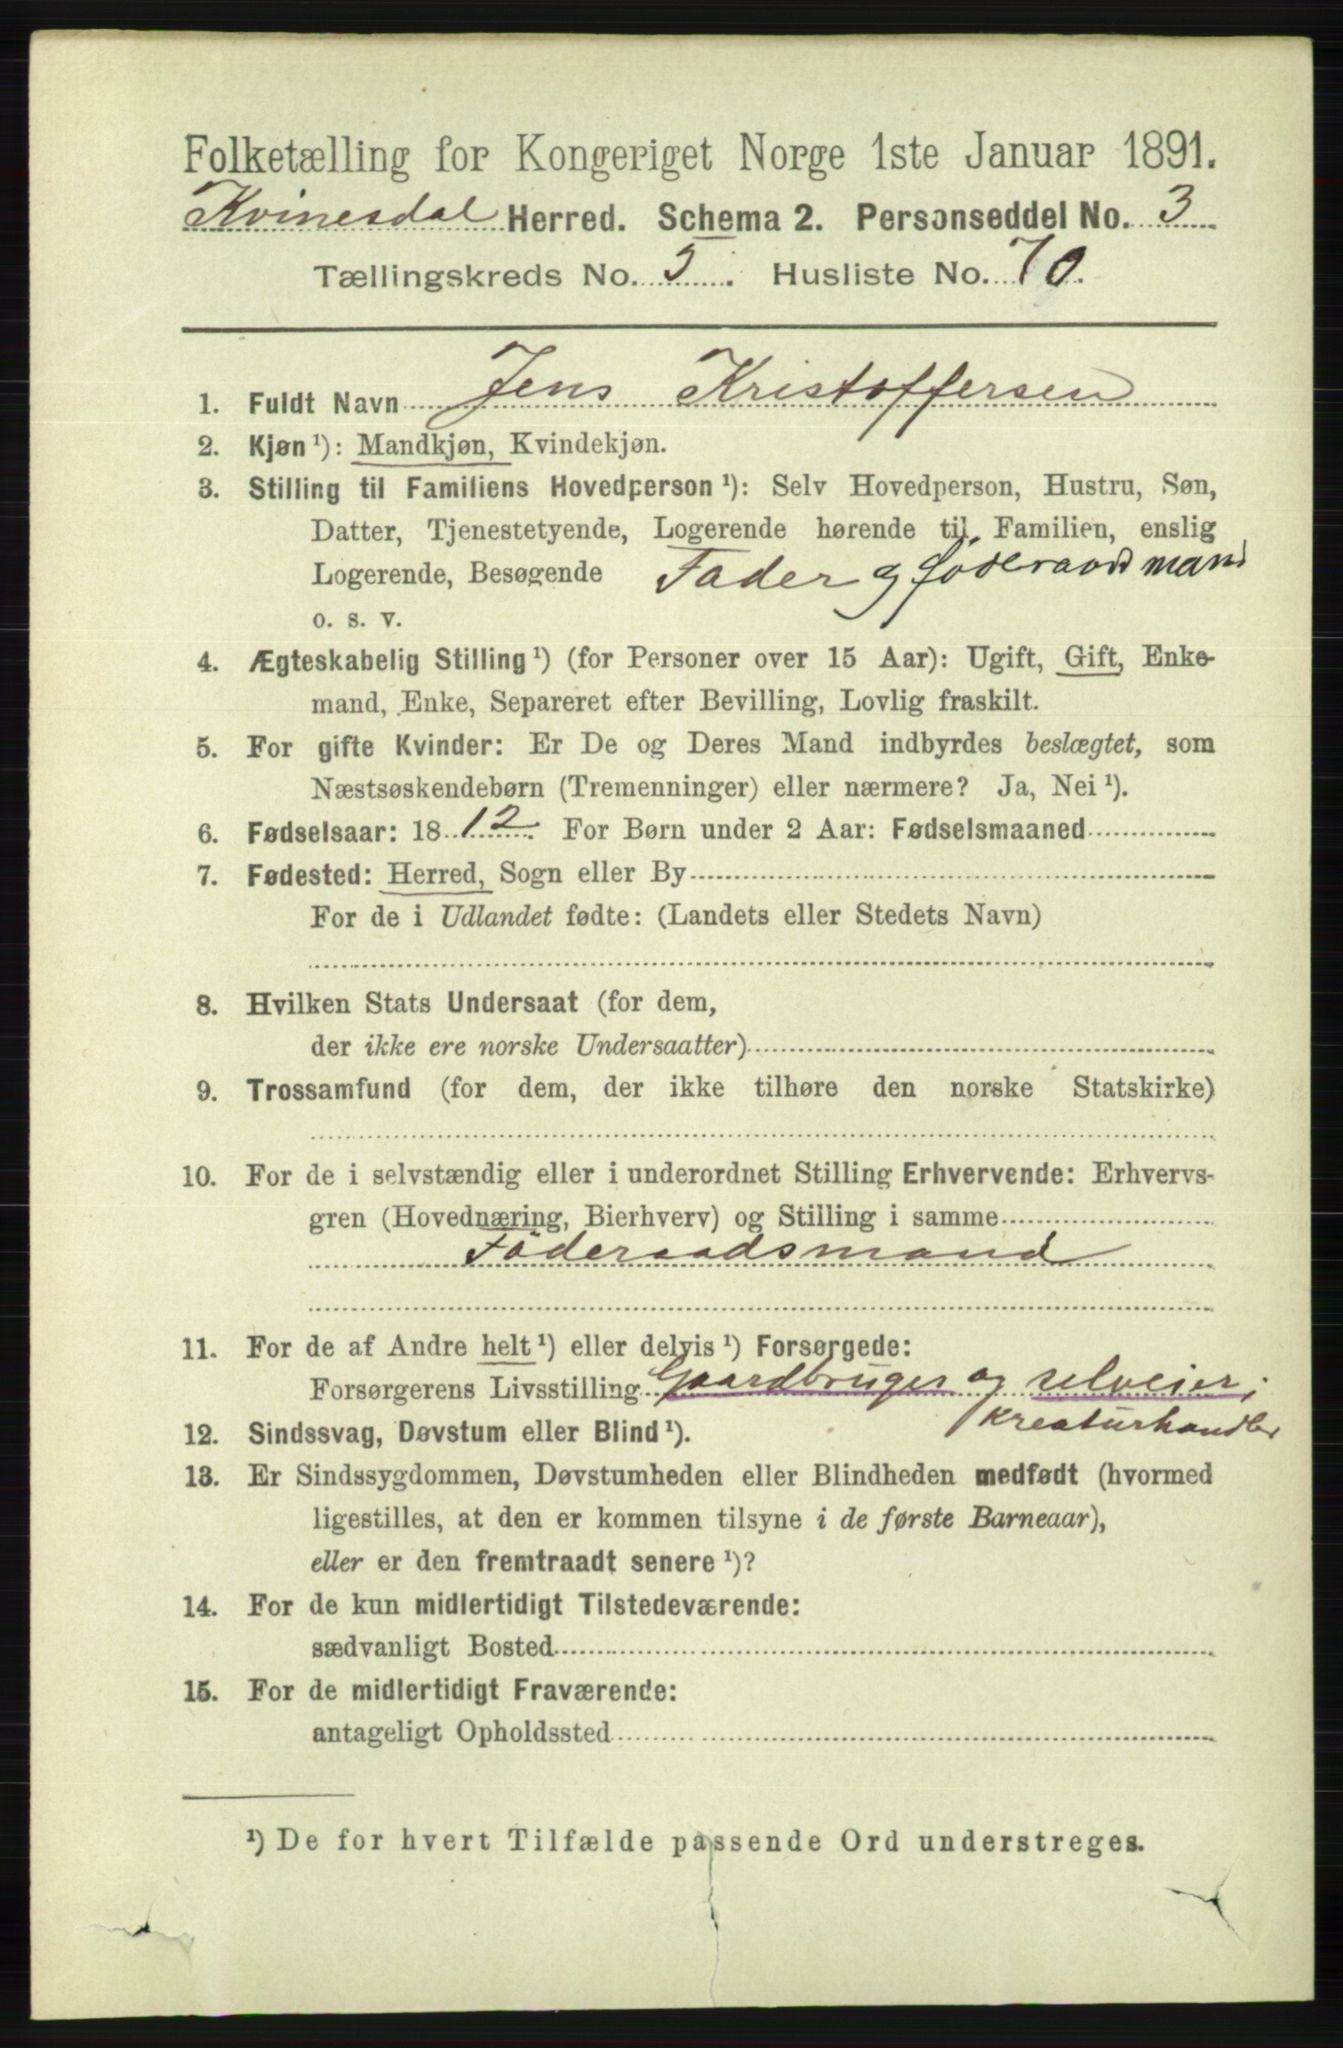 Folketælling for Kongeriget Norge 1ste Januar 1891.
Kvinesdal Herred. Schema 2. Personseddel No. 3
Tællingskreds No. 5. Husliste No. 70.
1. Fuldt Navn Jens Kristoffersen
2. Kjøn ¹): Mandkjøn, Kvindekjøn.
3. Stilling til Familiens Hovedperson ¹): Selv Hovedperson, Hustru, Søn,
Datter, Tjenestetyende, Logerende hørende til Familien, enslig
Logerende, Besøgende Fader og föderaadsmand
o. s. v.
4. Ægteskabelig Stilling ¹) (for Personer over 15 Aar): Ugift, Gift, Enke-
mand, Enke, Separeret efter Bevilling, Lovlig fraskilt.
5. For gifte Kvinder: Er De og Deres Mand indbyrdes beslægtet, som
Næstsøskendebørn (Tremenninger) eller nærmere? Ja, Nei ¹).
6. Fødselsaar: 1812. For Børn under 2 Aar: Fødselsmaaned
7. Fødested: Herred, Sogn eller By
For de i Udlandet fødte: (Landets eller Stedets Navn)
8. Hvilken Stats Undersaat (for dem,
der ikke ere norske Undersaatter)
9. Trossamfund (for dem, der ikke tilhøre den norske Statskirke)
10. For de i selvstændig eller i underordnet Stilling Erhvervende: Erhvervs-
gren (Hovednæring, Bierhverv) og Stilling i samme
Föderaadsmand
11. For de af Andre helt ¹) eller delvis ¹) Forsørgede:
Forsørgerens Livsstilling Gaardbruger og selveier;
kreaturhandler
12. Sindssvag, Døvstum eller Blind ¹).
13. Er Sindssygdommen, Døvstumheden eller Blindheden medfødt (hvormed
ligestilles, at den er kommen tilsyne i de første Barneaar),
eller er den fremtraadt senere ¹)?
14. For de kun midlertidigt Tilstedeværende:
sædvanligt Bosted
15. For de midlertidigt Fraværende:
antageligt Opholdssted
¹) De for hvert Tilfælde passende Ord understreges.